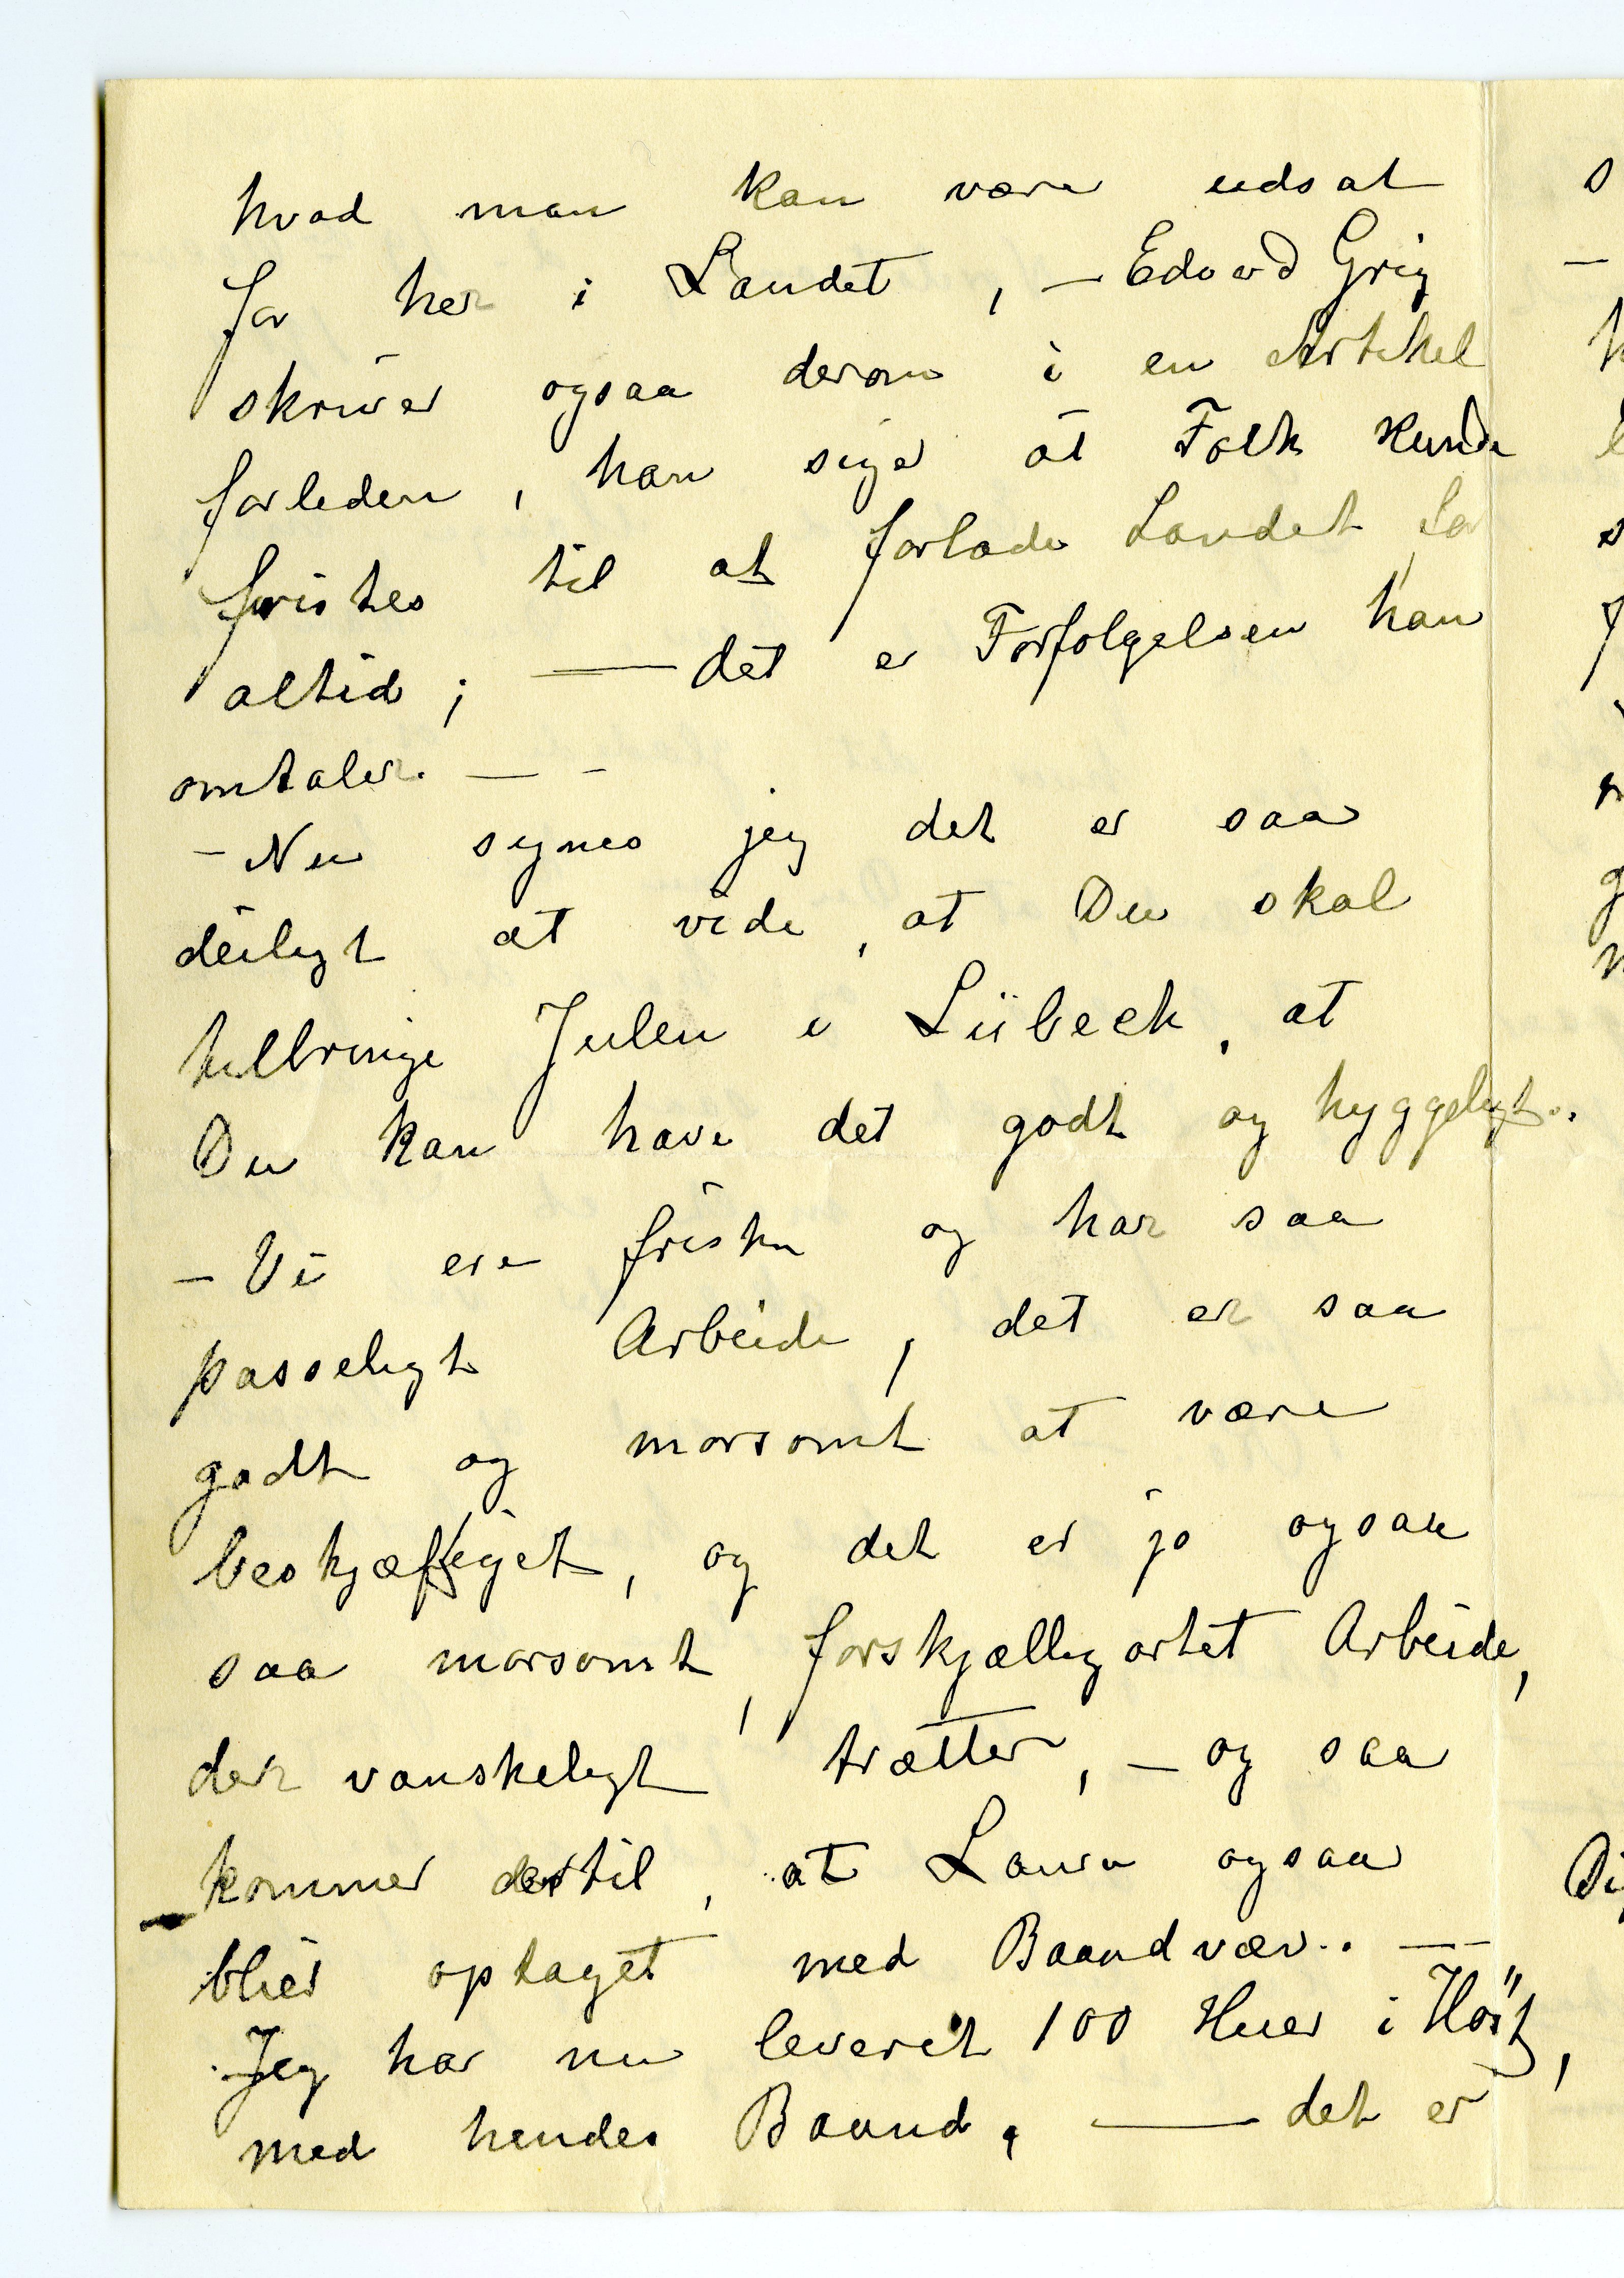 hvad man kan være udsat
for her i Landet, — Edvard Grig
skriver ogsaa derom i en Artikel
forleden, han siger at Folk kunde
fristes til at forlade Landet for
altid; — det er Forfølgelsen han
omtaler. — -
- Nu synes jeg det er saa
deiligt at vide, at Du skal
tilbringe Julen i Lübeck, at
Du kan have det godt og hyggeligt.
- Vi ere friske og har saa
passeligt Arbeide, det er saa
godt og morsomt at være
beskjæftiget, og det er jo ogsaa
saa morsomt, forskjælligartet Arbeide,
der vanskeligt trætter, — og saa
kommer dertil, at Laura ogsaa
blier optaget med Baandvæv.. —-
Jeg har nu leveret 100 Huer i Høst,
med hendes Baand, — det er